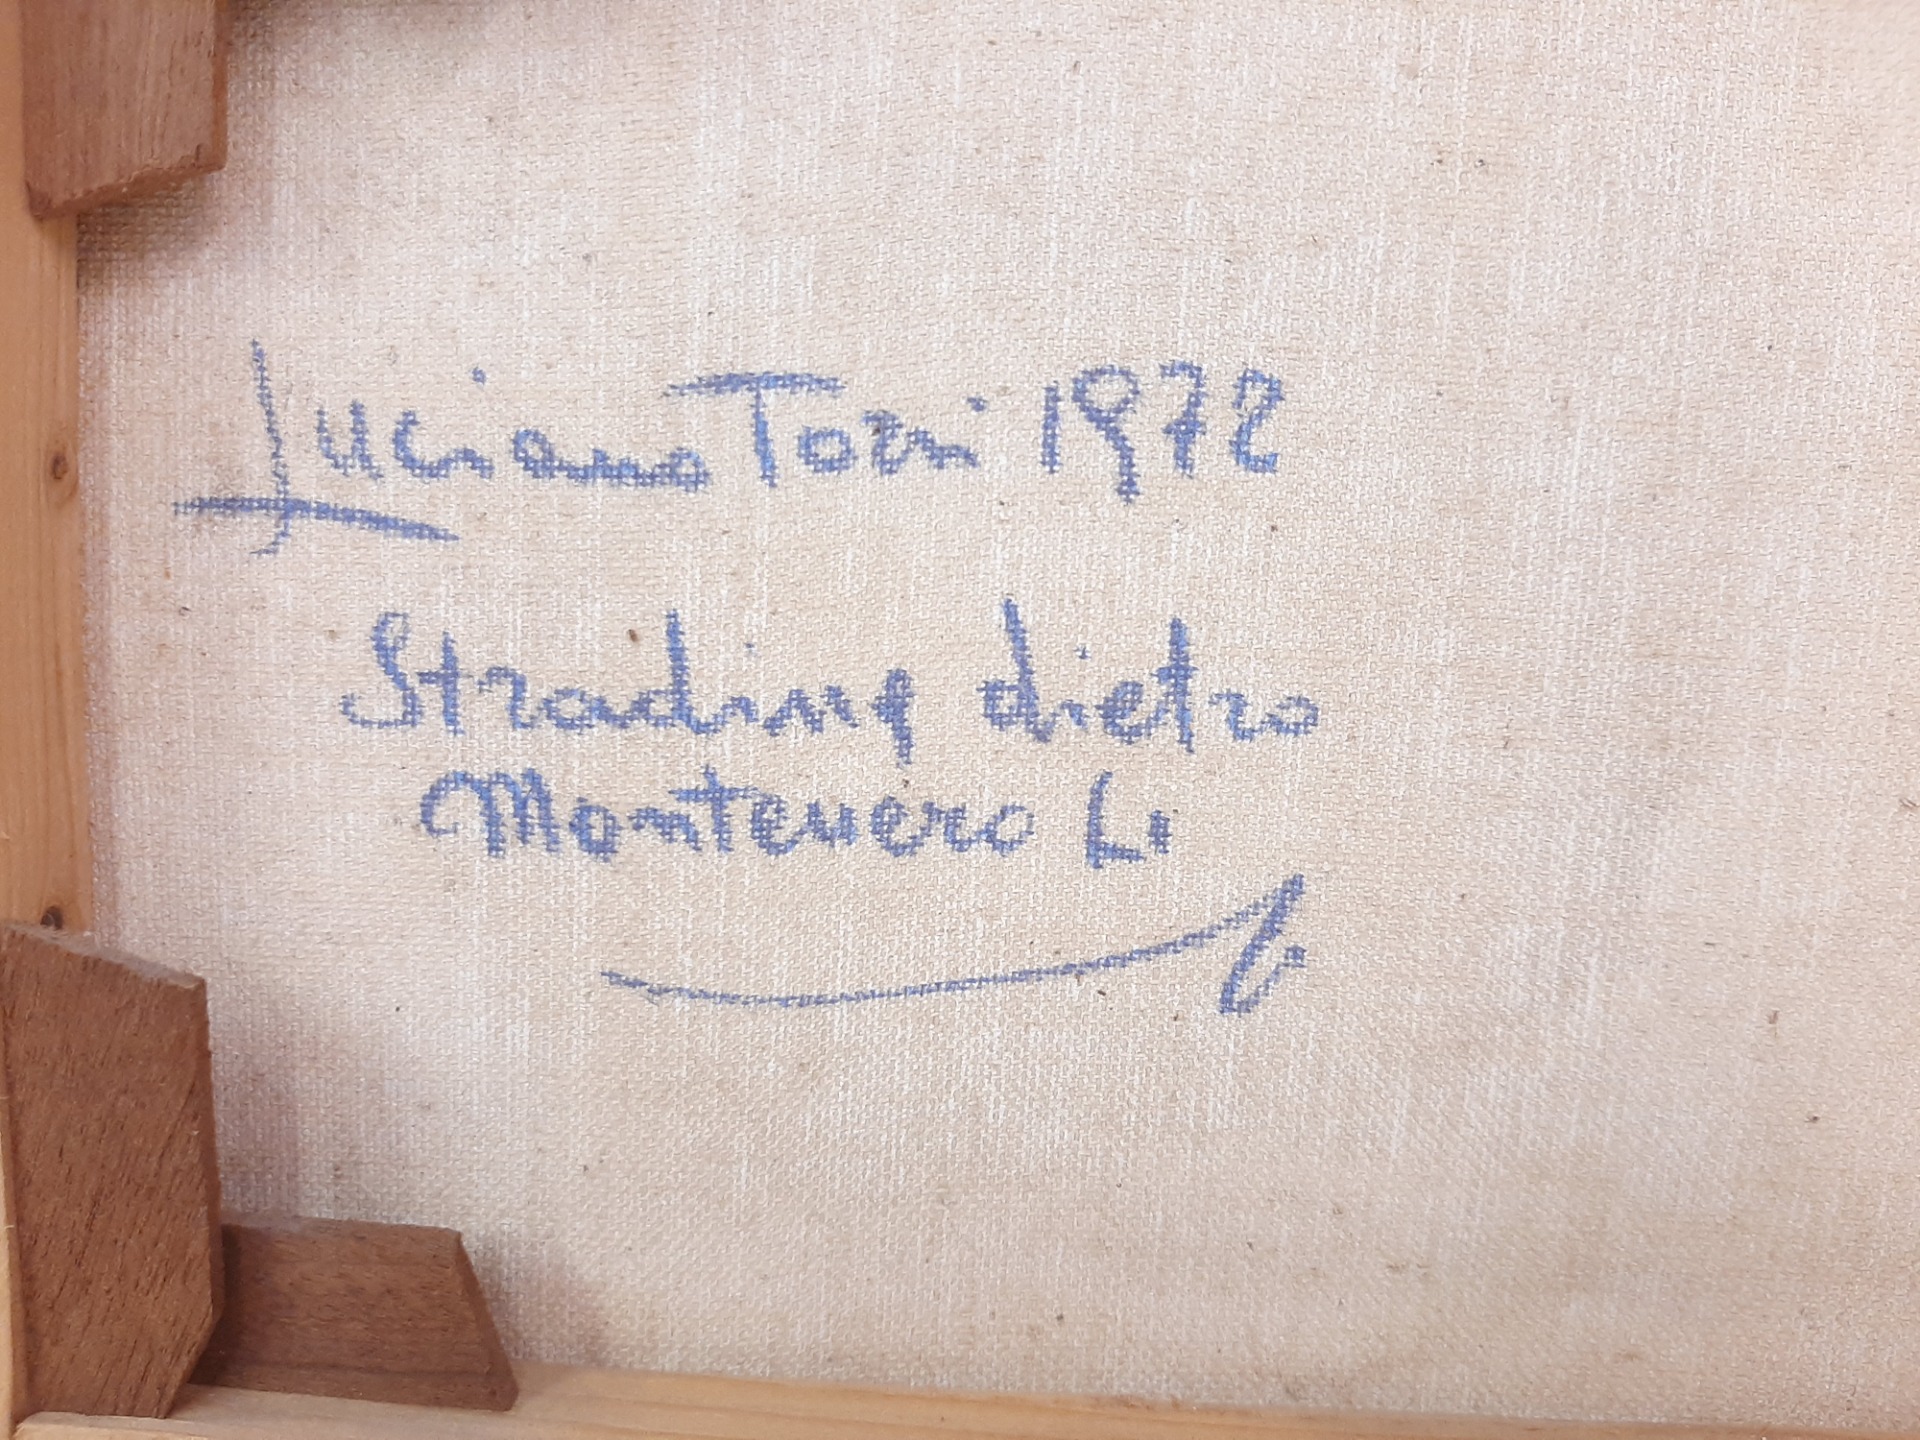 Luciano Tozzi 1972
Stradina dietro
Montenero Li